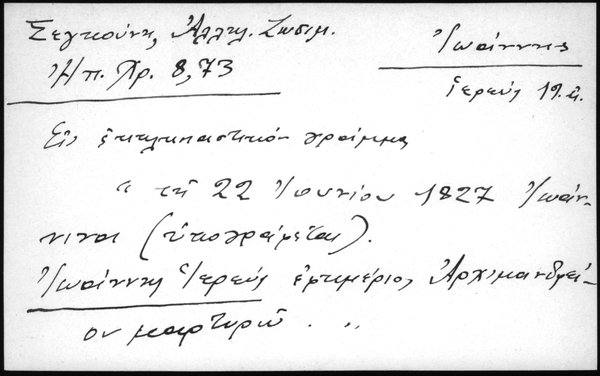 Σεγκούνη, Ἀλληλ. Ζωσιμ.
Ἠπ. Χρ. 8,73
Ἰωάννης
ἱερεύς 19. αἰ.
Εἰς ἐκκλησιαστικόν γράμμα
“ τῇ 22 Ἰουνίου 1827 Ἰωάν-
νινα (ὑπογράφεται).
Ἰωάννης Ἱερεύς ἐφημέριος Ἀρχιμανδρεί-
ου μαρτυρῶ . „